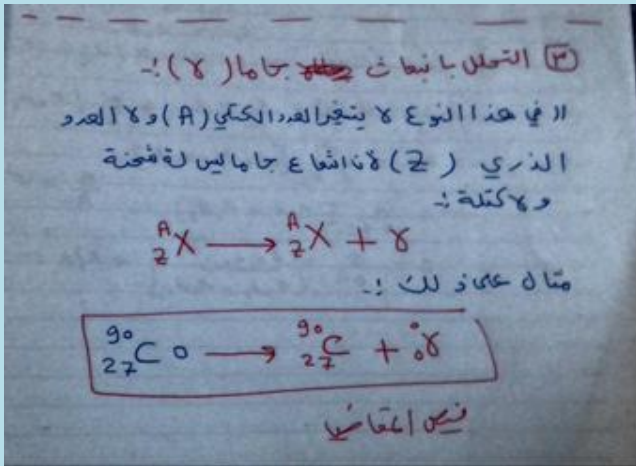 ٣ التحلل بانبعاث جاما (γ) :-
(( في هذا النوع لا يتغير العدد الكتلي (A) ولا العدد
الذري (Z) لأن اشعاع جاما ليس له شحنة
ولا كتلة :-
ᴬ_Z X → ᴬ_Z X + γ
مثال على ذلك :-
⁹⁰₂₇Co → ⁹⁰₂₇C + ⁰₀γ